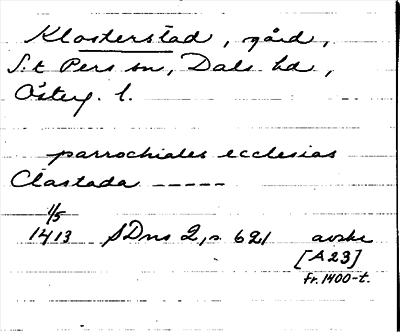 Klosterstad, gård,
S:t Pers sn, Dals hd,
Österg. l.
parrochiales ecclesias
Clastada -----
1/5
1413 SDns 2, s. 621 avskr
[A 23]
fr. 1400-t.